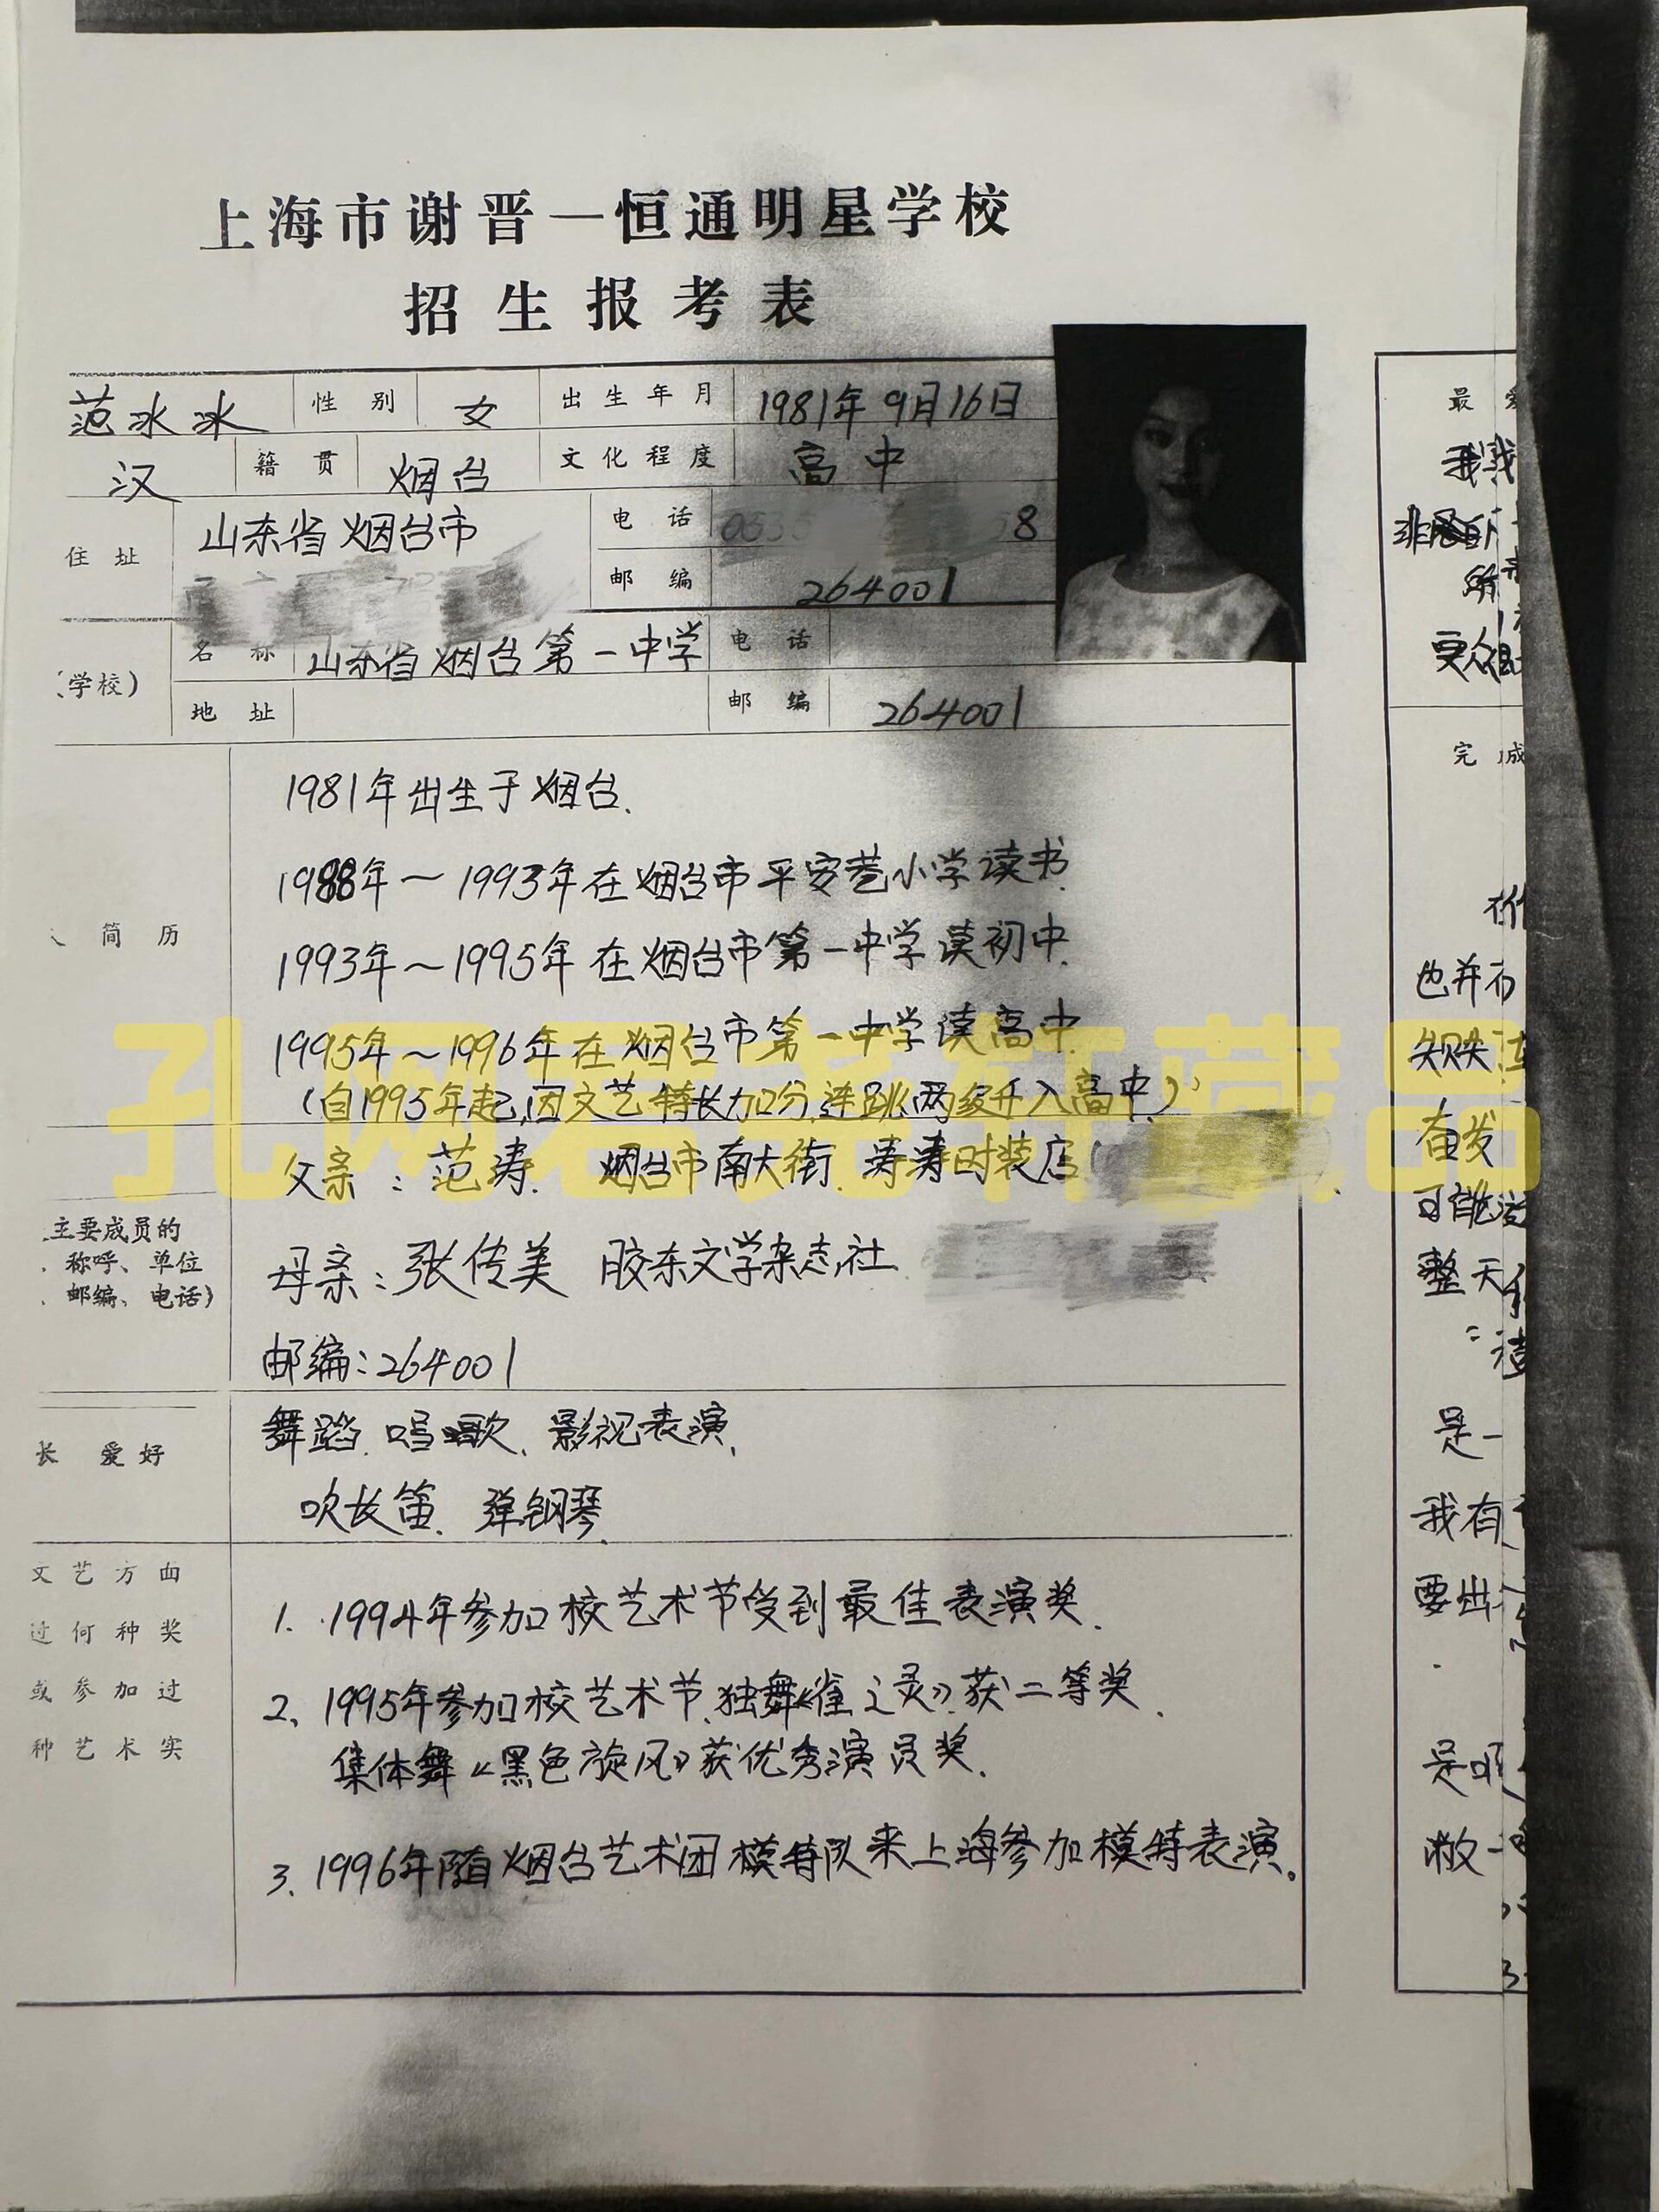 上海市谢晋—恒通明星学校
招生报考表
范冰冰 性别 女 出生年月 1981年9月16日
汉 籍贯 烟台 文化程度 高中
住址 山东省烟台市 电话
邮编 264001
(学校) 名称 山东省烟台第一中学 电话
地址 邮编 264001
简历
1981年出生于烟台.
1988年~1993年在烟台市平安巷小学读书.
1993年~1995年在烟台市第一中学读初中.
1995年~1996年在烟台市第一中学读高中.
(自1995年起,因文艺特长加分,连跳两级升入高中.)
主要成员的
称呼、单位
邮编、电话)
父亲:范涛. 烟台市南大街.涛涛时装店(
母亲:张传美 胶东文学杂志社.
邮编:264001
长 爱好
舞蹈.唱歌.影视表演,
吹长笛.弹钢琴.
文艺方面
过何种奖
或参加过
种艺术实
1. 1994年参加校艺术节受到最佳表演奖.
2、1995年参加校艺术节.独舞《雀之灵》获二等奖.
集体舞《黑色旋风》获优秀演员奖.
3.1996年随烟台艺术团模特队来上海参加模特表演。
最
完成
也并不
可能
整天
是一
我有
要出
是
孔网 轩藏品